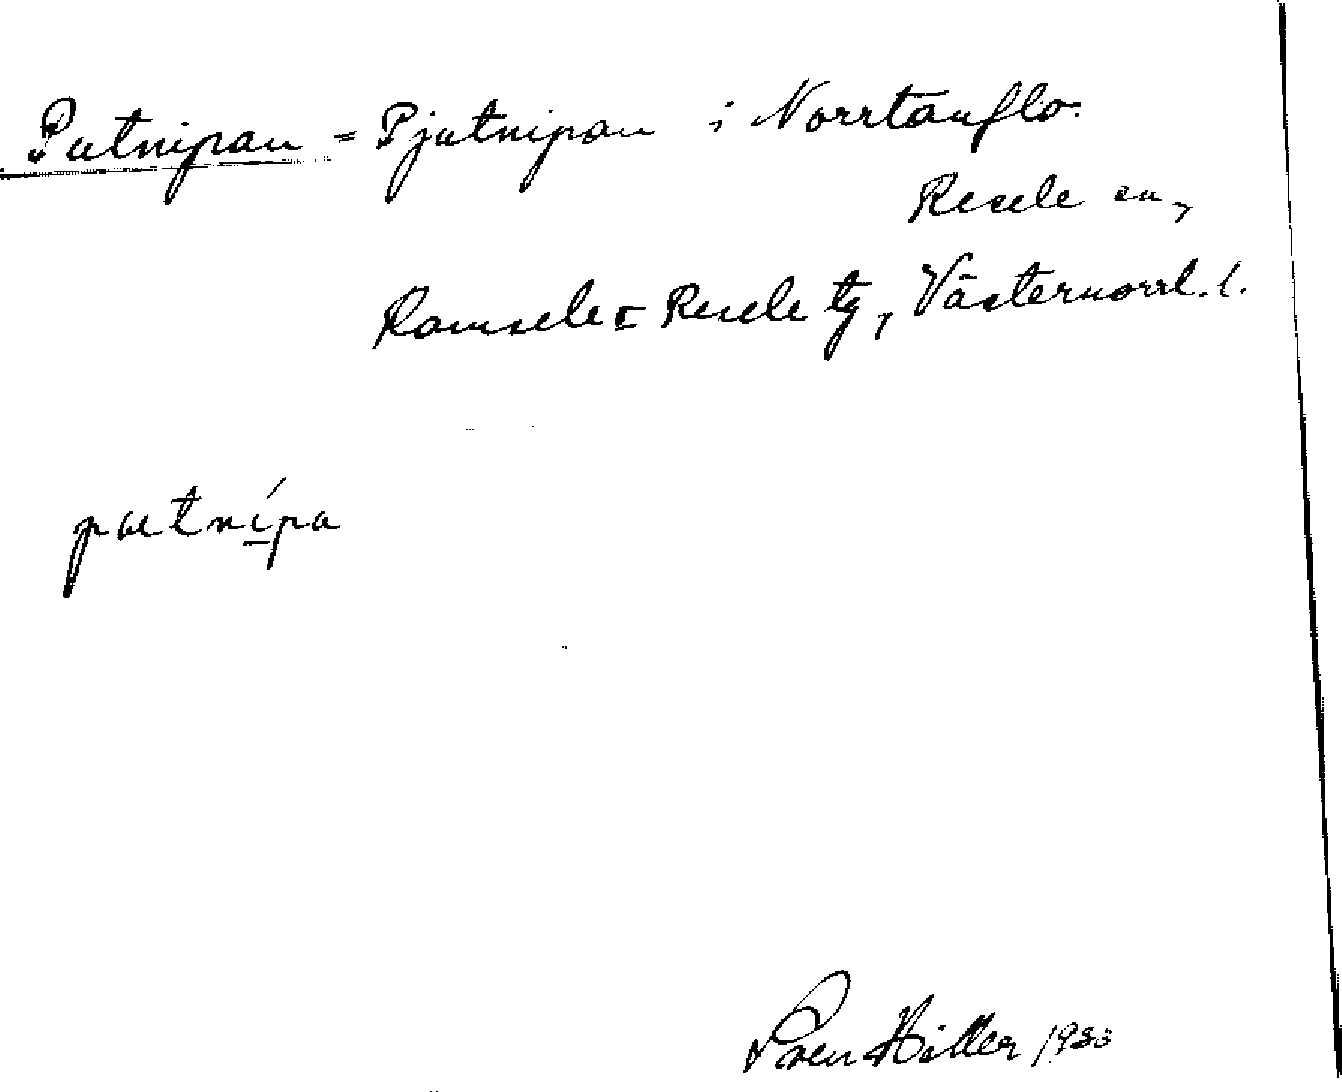 Putnipan = Pjutnipan i Norrtanflo.
Resele sn,
Ramsele o Resele tg, Västernorrl. l.
putnípa
Sven Hiller 1933